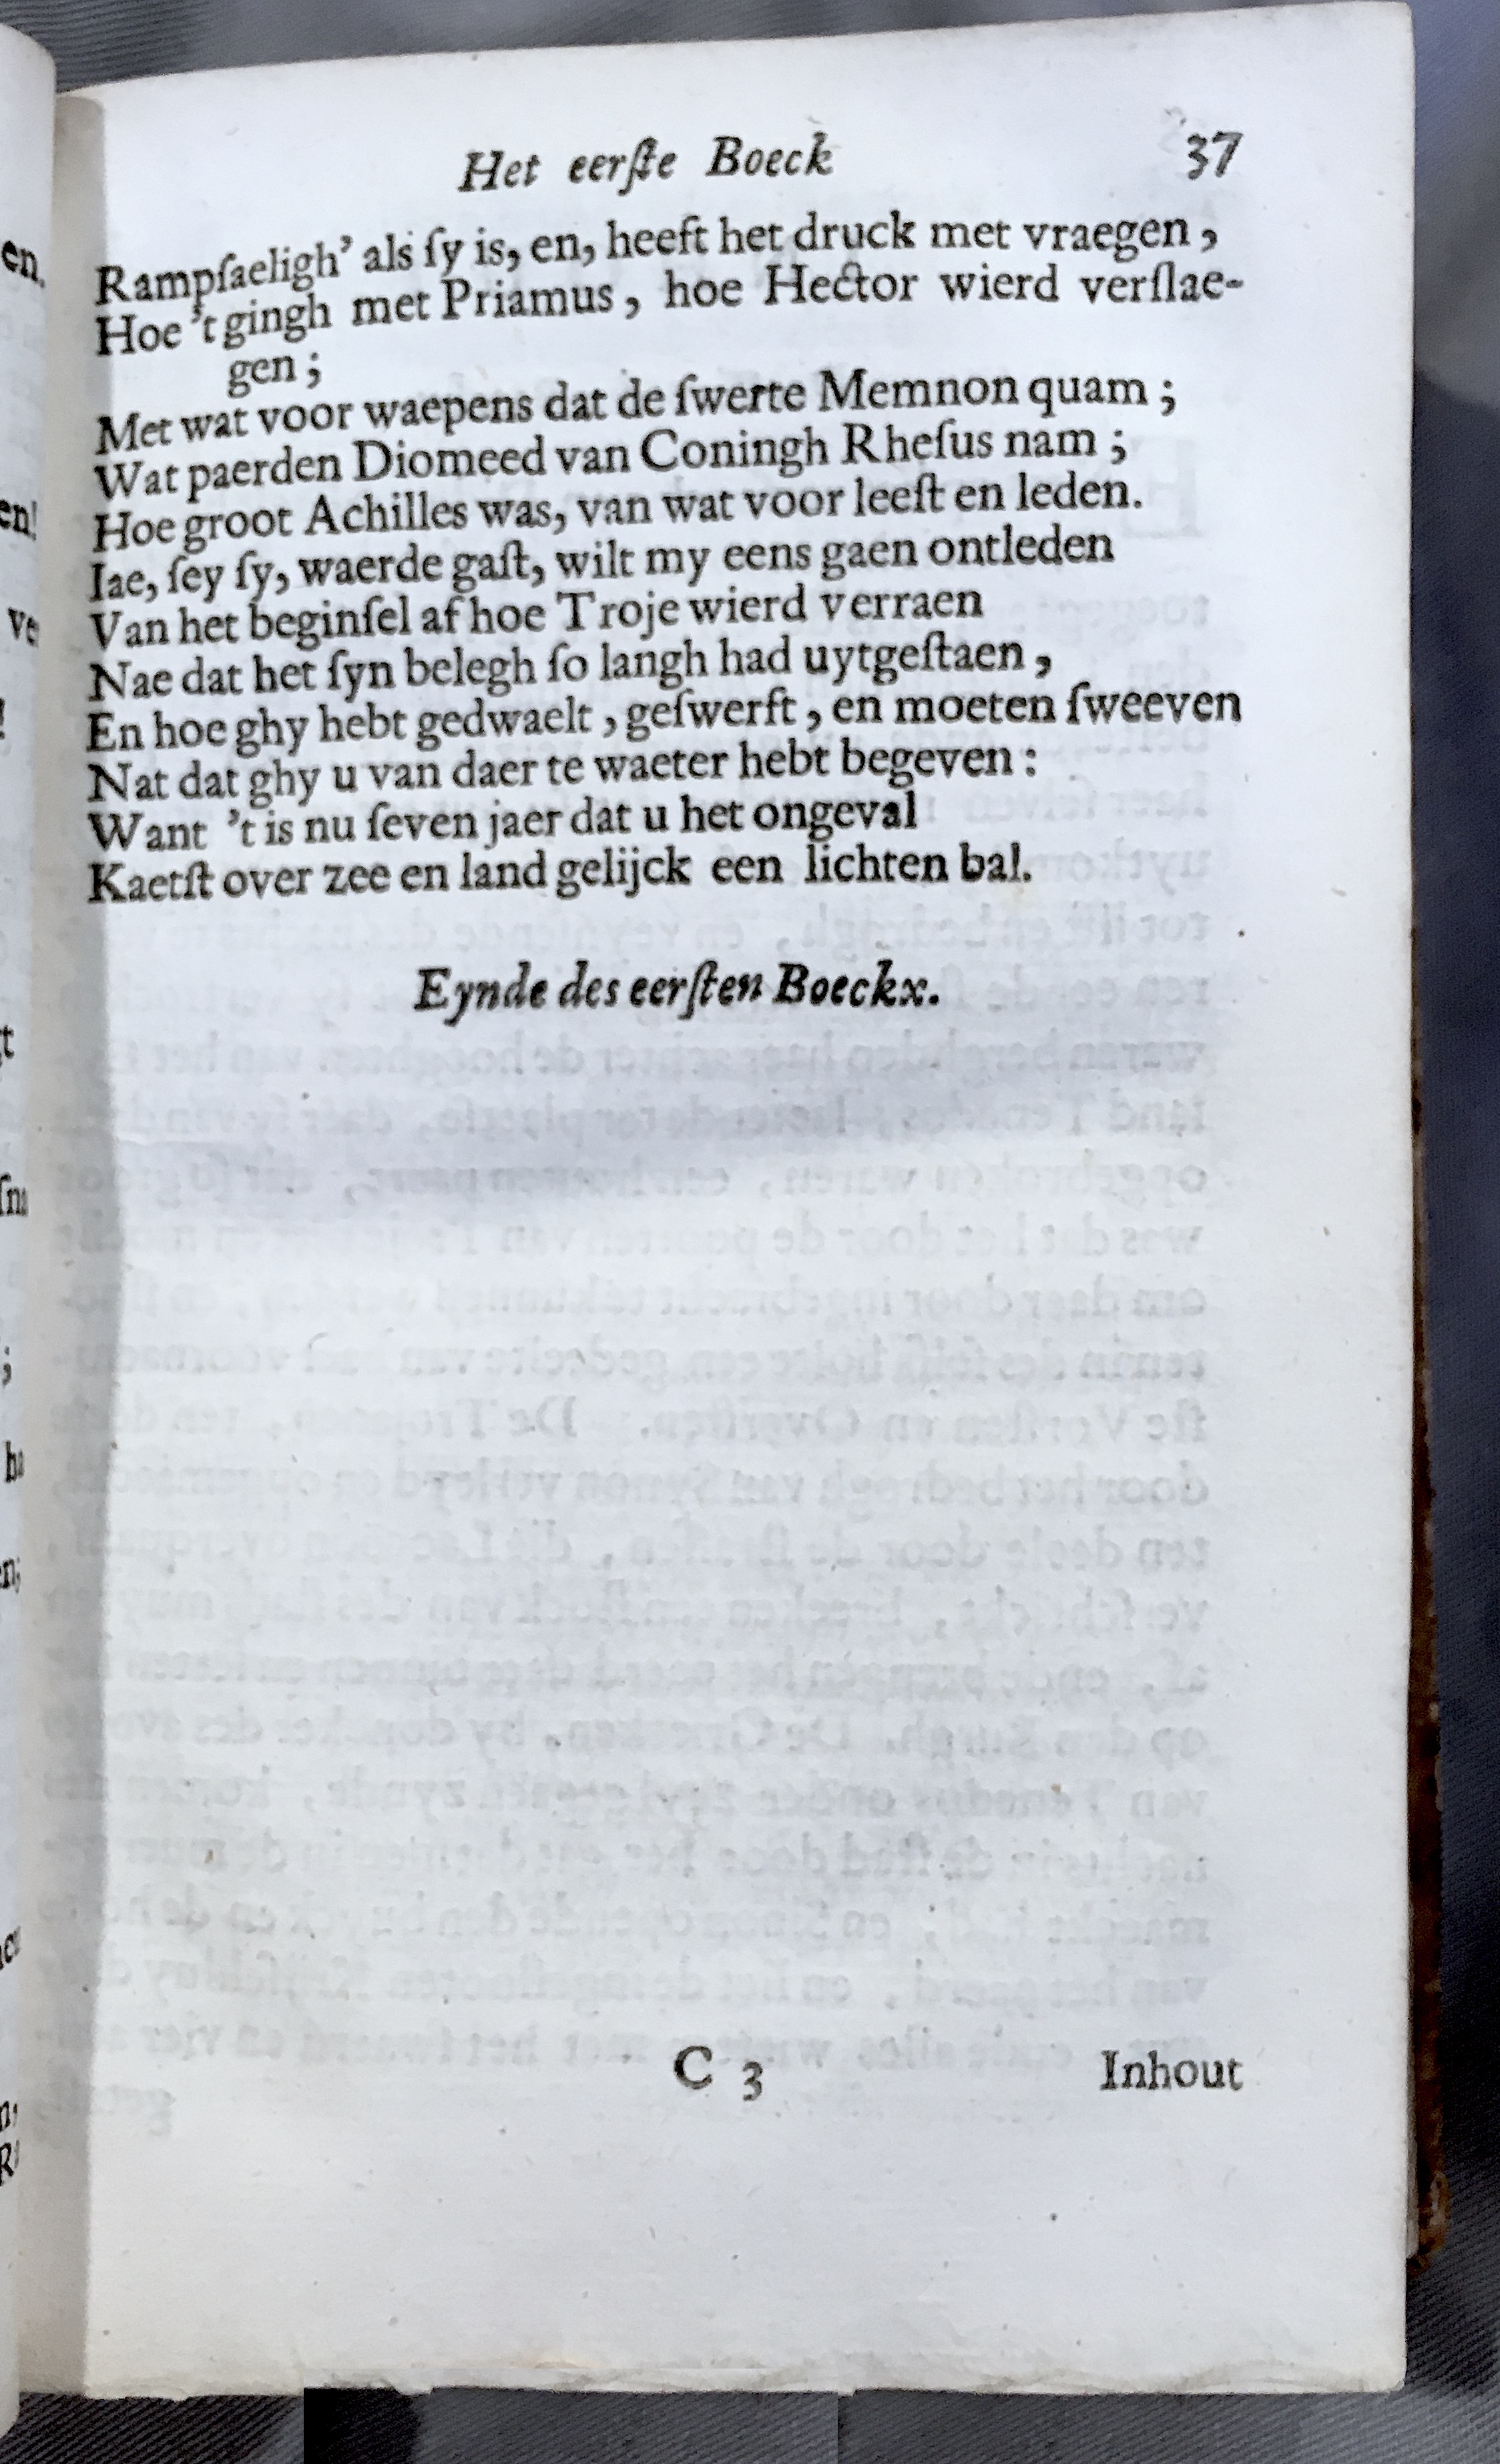 Het eerſte Boeck 37
Rampſaeligh’ als ſy is, en, heeft het druck met vraegen,
Hoe ’t gingh met Priamus, hoe Hector wierd verſlae-
gen;
Met wat voor waepens dat de ſwerte Memnon quam;
Wat paerden Diomeed van Coningh Rheſus nam;
Hoe groot Achilles was, van wat voor leeſt en leden.
Iae, ſey ſy, waerde gaſt, wilt my eens gaen ontleden
Van het beginſel af hoe Troje wierd verraen
Nae dat het ſyn belegh ſo langh had uytgeſtaen,
En hoe ghy hebt gedwaelt, geſwerft, en moeten ſweeven
Nat dat ghy u van daer te waeter hebt begeven:
Want ’t is nu ſeven jaer dat u het ongeval
Kaetſt over zee en land gelijck een lichten bal.
Eynde des eerſten Boeckx.
C 3 Inhout